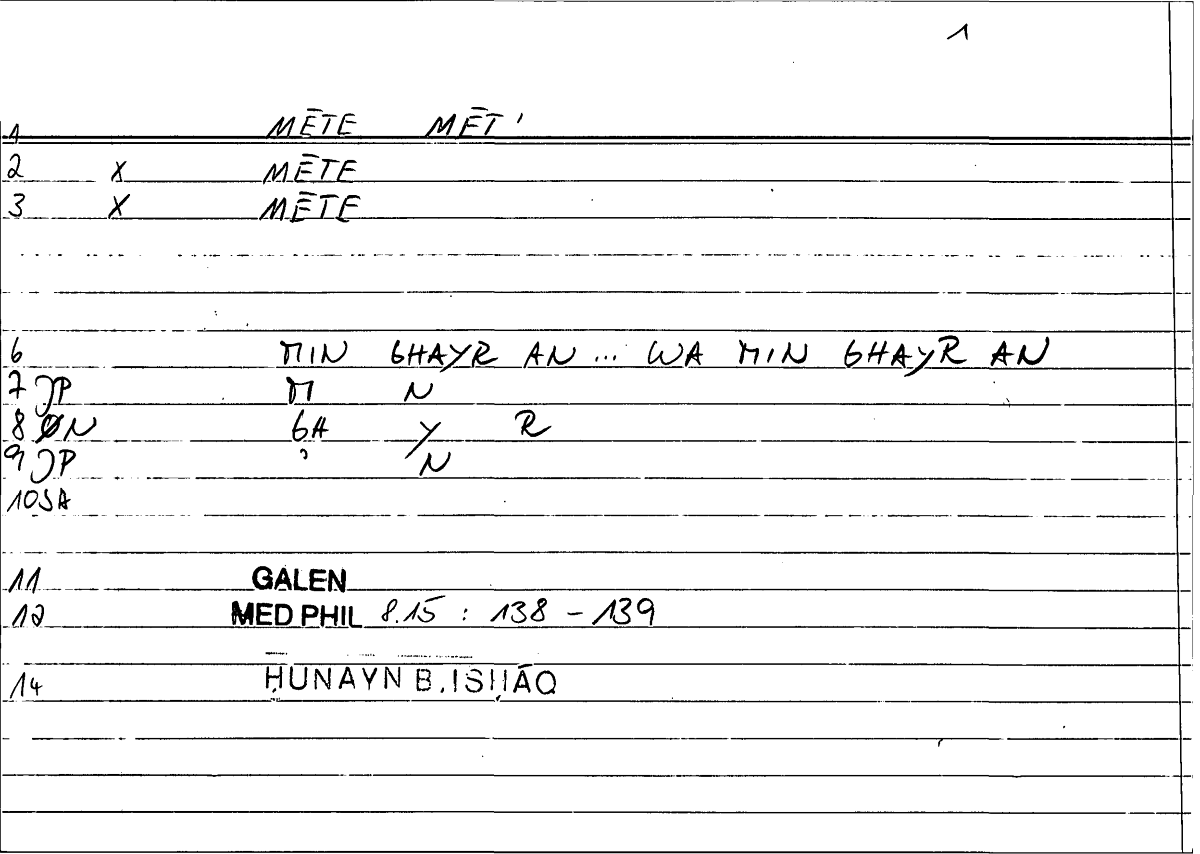 1
1 MĒTE MĒT'
2 X MĒTE
3 X MĒTE
6 MIN GHAYR AN ... WA MIN GHAYR AN
7 JP M N
8 ØN GH Y R
9 JP ' N
10 SA
11 GALEN
12 MED PHIL 8.15 : 138 - 139
14 ḤUNAYN B. ISḤĀQ